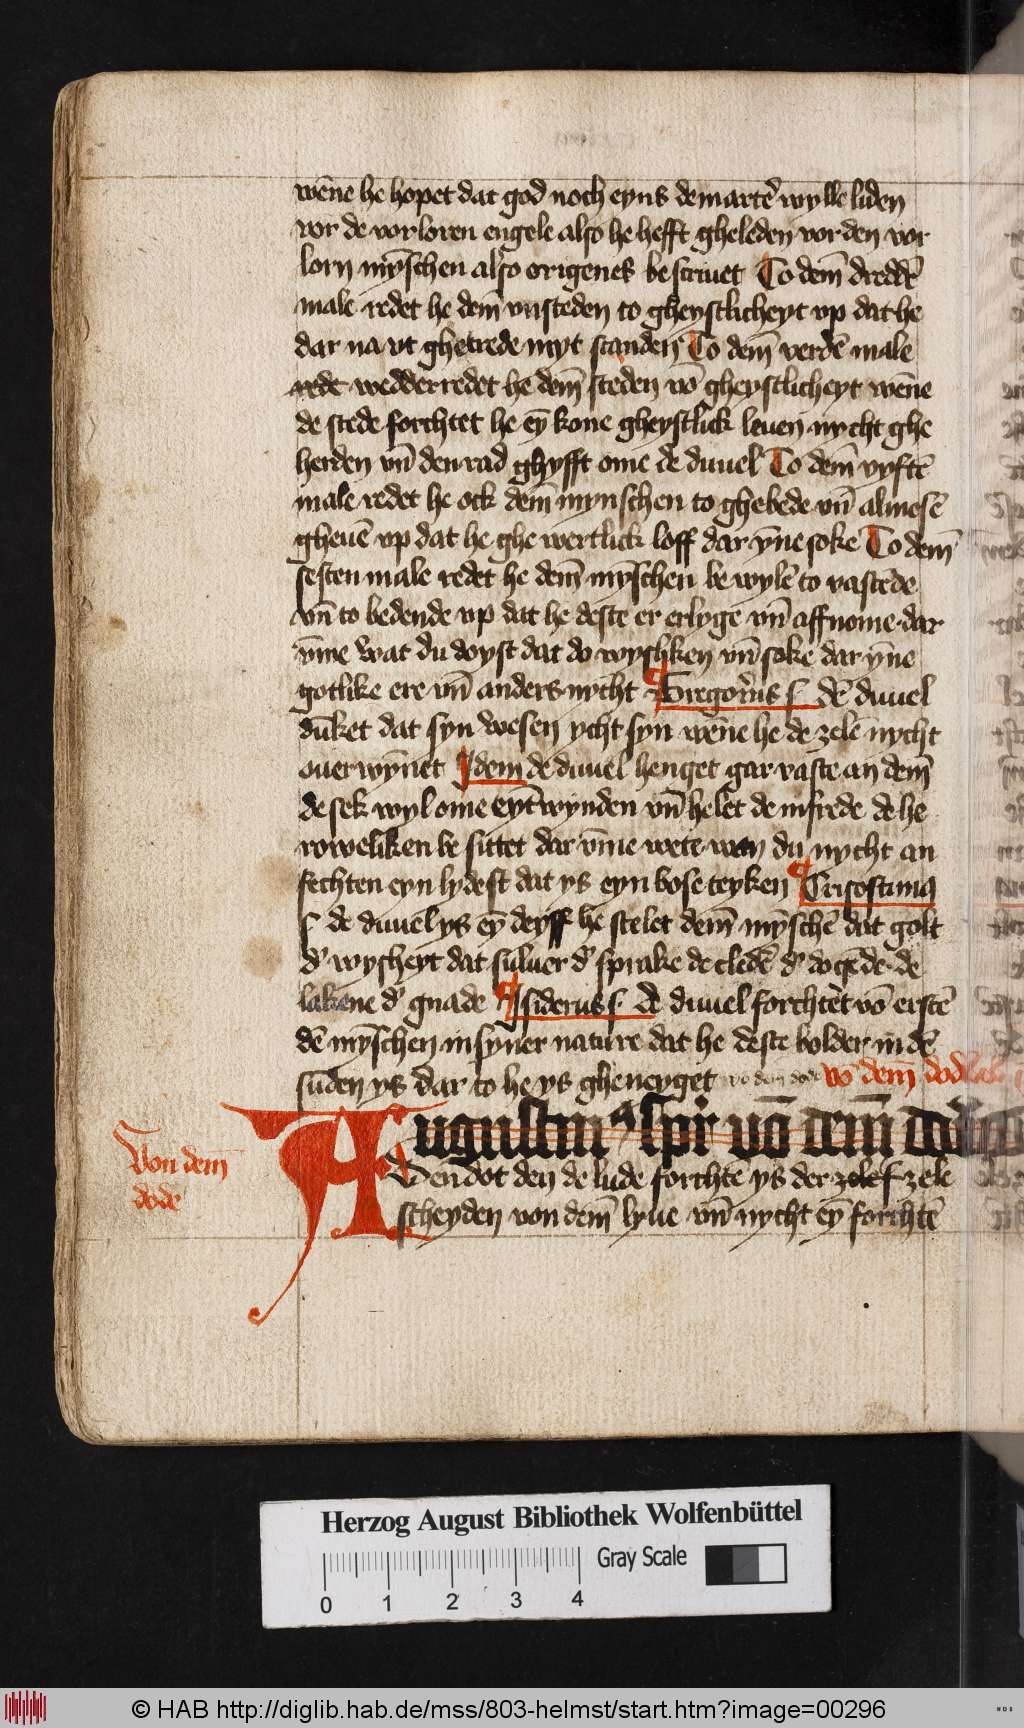 wēne he hopet dat god noch eyns de marteꝛ wylle liden
vor de vorloren engele also he hefft gheleden vor den vor
lorn mȳschen also origenes bescriuet To dem̄ dreddē
male redet he dem̄ vnsteden to gheystlicheyt vp dat he
dar na vt ghetrede myt scanden To dem̄ verdē male
rede wedderredet he dem̄ steden vō gheystlicheyt wēne
de stede forchtet he eȳ kone gheystlick leuen nycht ghe
herden vn̄ den rad ghyfft ome de duuel To dem̄ vyftē
male redet he ock dem̄ mynschen to ghebede vn̄ almesē
gheuē vp dat he ghe wertlick loff dar ȳne soke To dem̄
sesten male redet he dem̄ mȳschen be wylē to vastēde
vn̄ to bedende vp dat he deste er erlyge vn̄ affnome dar
v̄me wat du doyst dat do wyshken vn̄ soke dar ȳne
gotlike ere vn̄ anders nycht Gregorius s dē duuel
dūket dat syn wesen ycht syn wēne he de zelē nycht
ouerwȳnet Idem de duuel henget gar vaste an dem̄
de sek wyl ome eyt wynden vn̄ helet de in frede de he
roweliken be sittet dar v̄me wete wen du nycht an
fechten eyn lydest dat ys eyn bose teyken Crisostimꝰ
s de duuel ys eȳ deyff he stelet dem̄ mȳschē dat golt
d' wysheyt dat suluer d' sprake de cledē d' dogēde de
lakene d' gnade Isiderus s de duuel forchtet vō erstē
dē mȳschen in syner nature dat he deste bolder in dē
sūden ys dar to he ys gheneyget vō dem dode vō dem̄ dode
Augustinꝰ spr̄ vō dem̄
Von dem
dode
Den dot den de lude forchtē ys der zele
scheyden von dem̄ lyue vn̄ nycht eȳ forchtē
Herzog August Bibliothek Wolfenbüttel
Gray Scale
0 1 2 3 4
© HAB http://diglib.hab.de/mss/803-helmst/start.htm?image=00296